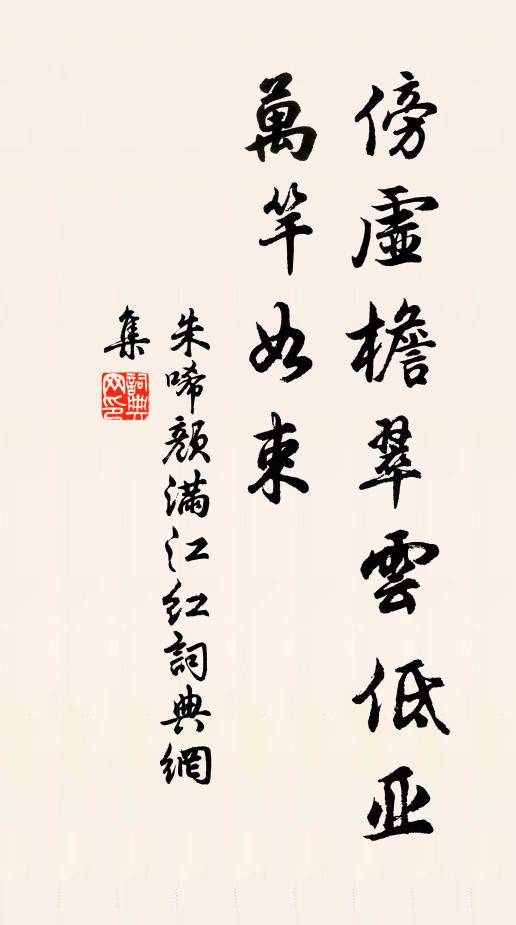 傍虛檐翠雲低亚
萬竿如束
朱唏顏滿江红詞典網
集
詞典网印